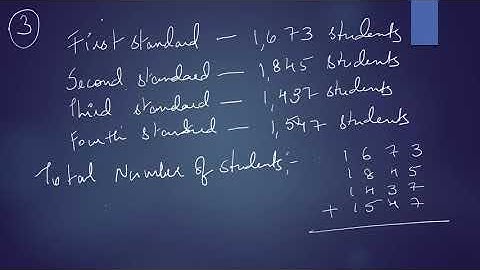 3
First standard — 1,673 students
Second standard — 1,845 students
Third standard — 1,437 students
Fourth standard — 1,547 students
Total Number of students:-
1 6 7 3
1 8 4 5
1 4 3 7
+ 1 5 4 7